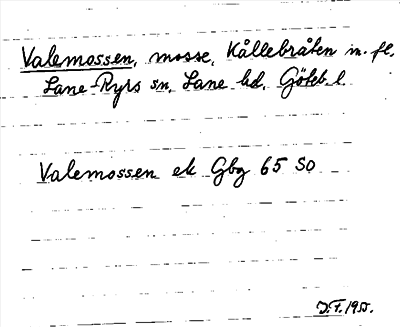 Valemossen, mosse, Kållebråten m. fl.
Lane-Ryrs sn, Lane hd, Göteb. l.
Valemossen ek Gbg 65 SO
J.F. 1955.